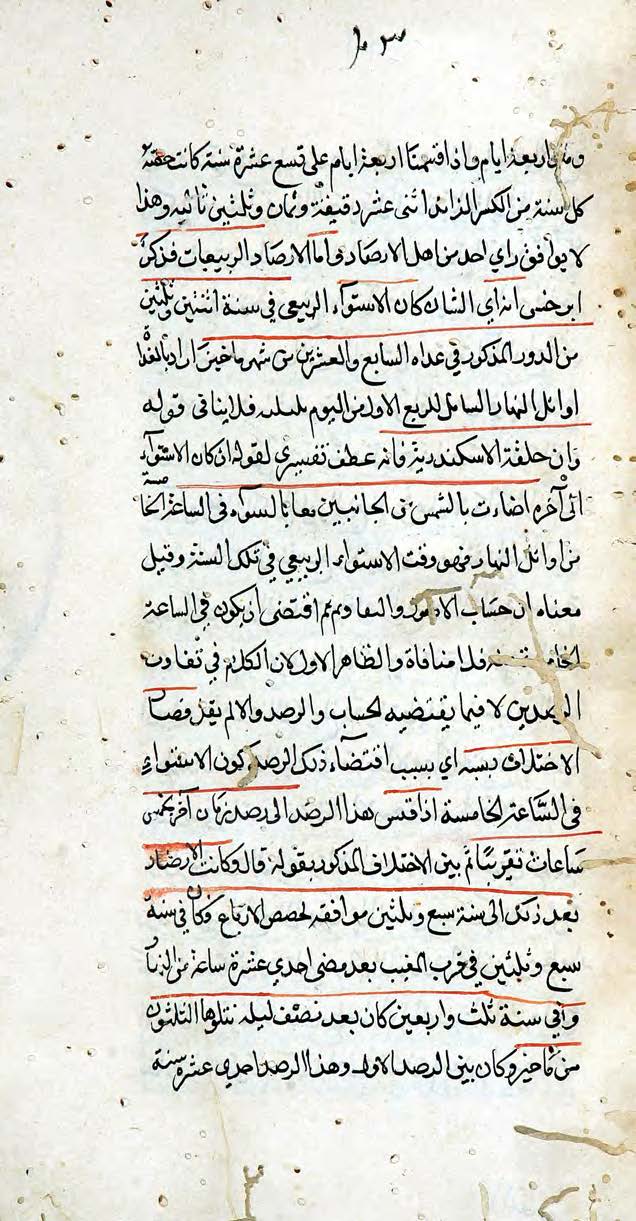 ١٠٣
اربعة ايام واذا قسمنا اربعة ايام على تسع عشرة سنة كانت حصّة
كل سنة من الكسر الزائد اثنى عشر دقيقة وثمان وثلثين ثانيه وهذا
لا يوافق راي احد من اهل الارصاد واما الارصاد الربيعيات فذكر
ابرخس انه اي الشان كان الاستوآء الربيعى في سنة اثنتين وثلثين
من الدور المذكور في غداه السابع والعشرين من شهر ماخير اراد بالغداة
اوائل النهار الشامل للربع الاول من اليوم فلا ينافى قوله
وان حلقة الاسكندرية فانه عطف تفسيري لقوله ان كان الاستوآء
الى آخره اضاءت بالشمس من الجانبين معا بالسوآء في الساعة الخامسة
من اوائل النهار فهو وقت الاستواء الربيعي في تلك السنة وقيل
معناه ان حساب اقتضى ان يكون في الساعة
الخامسة منه فلا منافاة والظاهر الاول لان الكلام في تفاوت
الرصدين لا فيما يقتضيه الحساب والرصد والا لم يقل فصار
الاختلاف بسببه اي بسبب اقتضاء ذلك الرصد كون الاستواء
في السّاعة الخامسة اذا قيس هذا الرصد الى رصد زمان آخر بخمس
ساعات تقريبًا ثم بين الاختلاف المذكور بقوله قال وكانت الارصاد
بعد ذلك الى سنة سبع وثلثين موافقه لحصص الارباع وكان في سنة
سبع وثلثين في قرب المغيب بعد مضى احدي عشرة ساعة من النهار
وفي سنة ثلث واربعين كان بعد نصف ليله تتلوها الثلثون
من ماخير وكان بين الرصد الاول وهذا الرصد احدي عشرة سنة